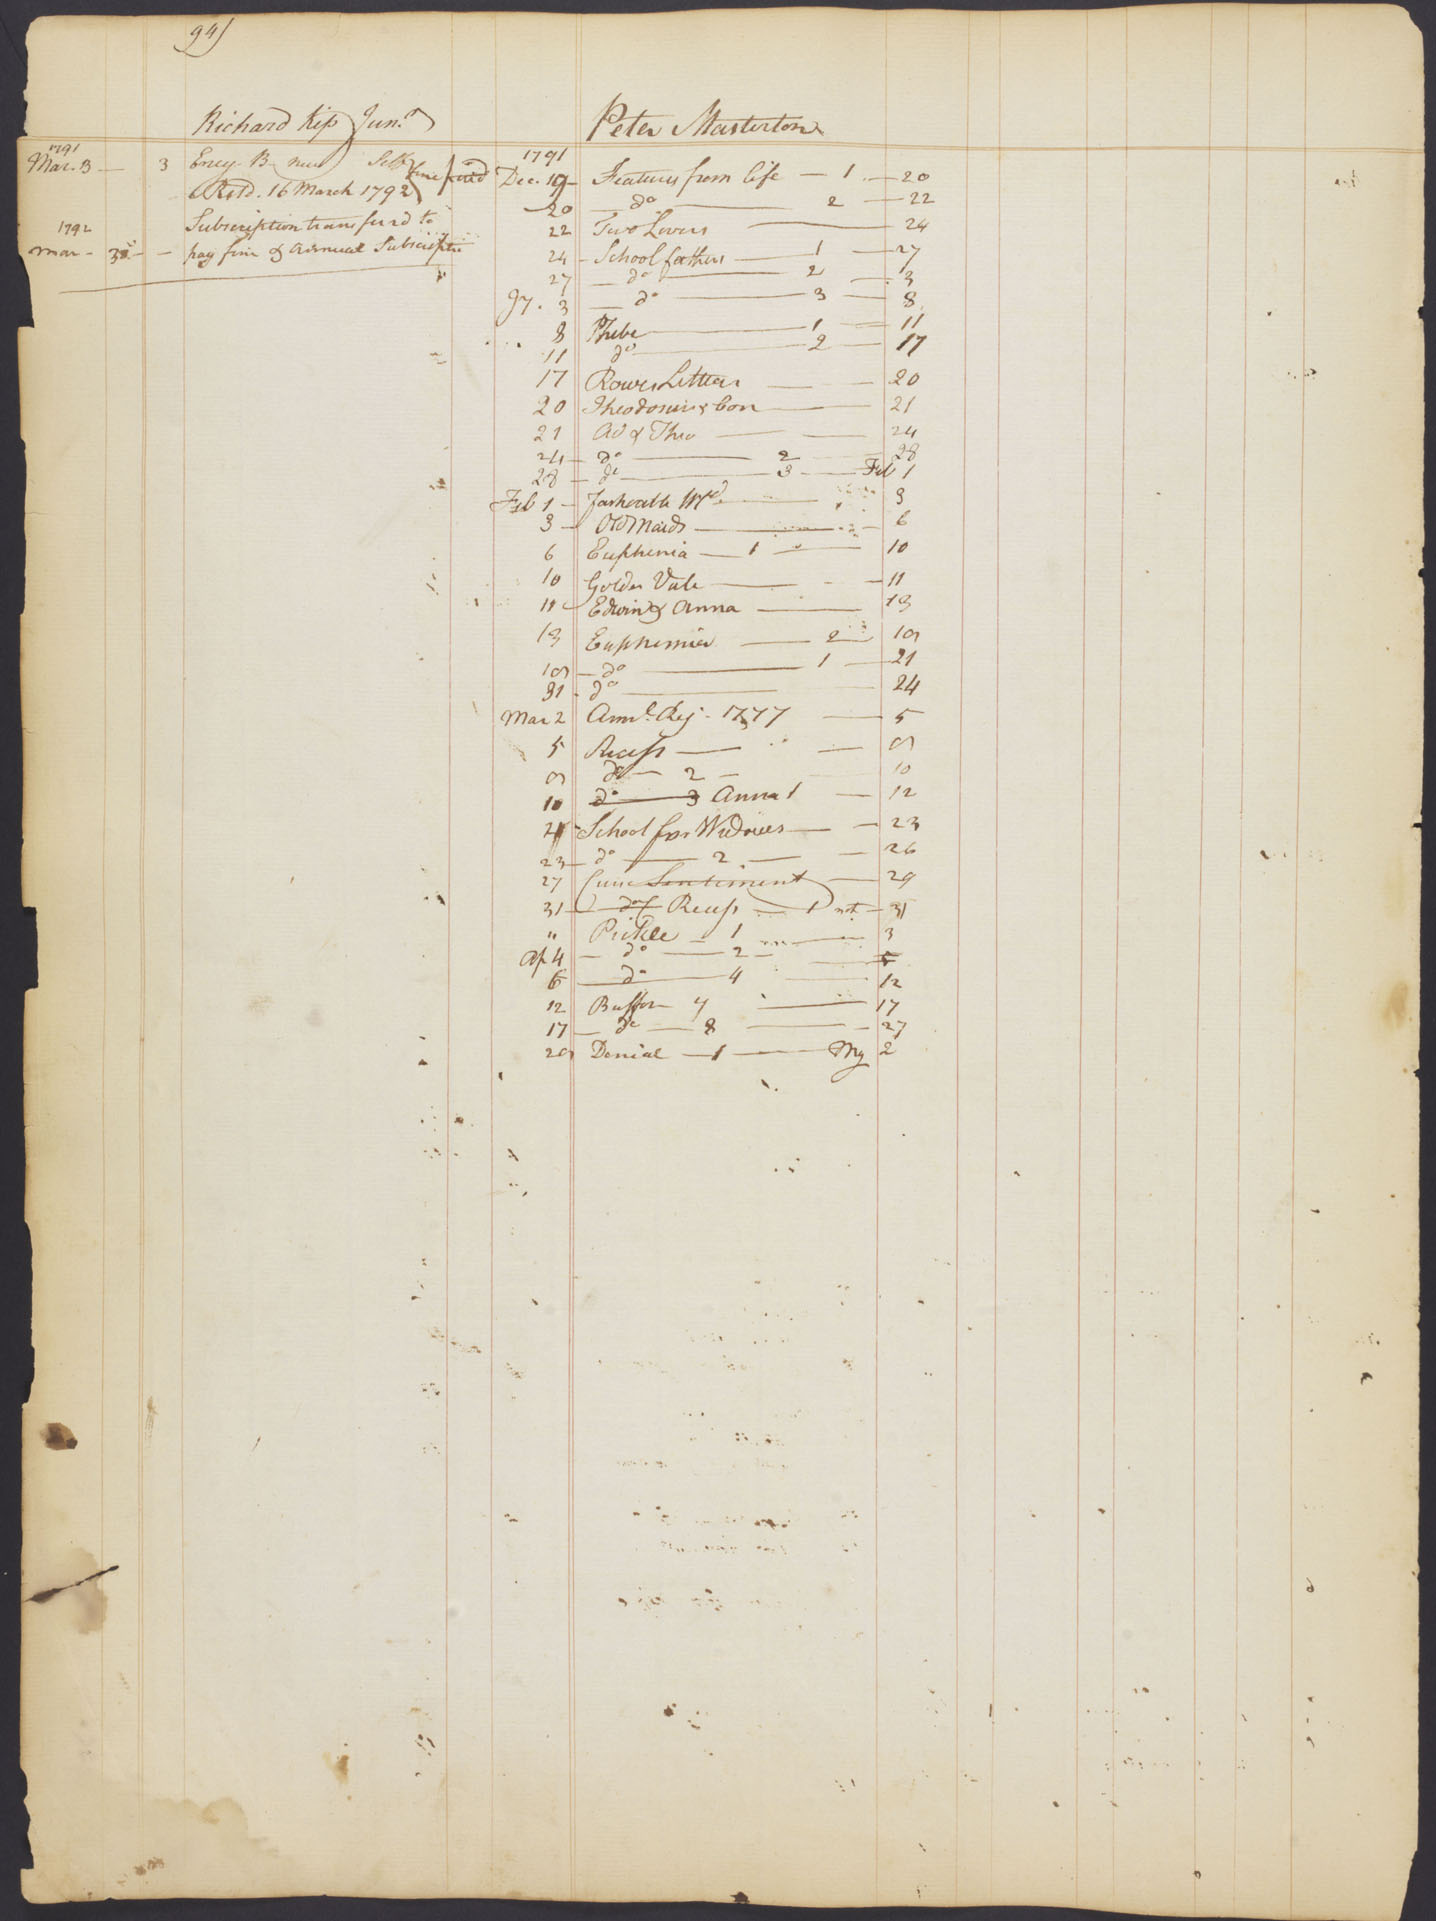 94)
Richard Kip Junr
1791
Mar. 3 — 3 Ency. B. Self fine paid
Retd. 16 March 1792
Subscription transferd to
1792
Mar - 3 - - pay fine & Annual Subscriptn
Peter Masterton
1791
Dec. 19 - Features from life - 1 - 20
20 - do - 2 - 22
22 Two Lovers - 24
24 - School fathers - 1 - 27
27 - do - 2 - 3
Jy. 3 - do - 3 - 8
8 Phebe - 1 - 11
11 do - 2 - 17
17 Rowes Letters - 20
20 Theodosius & Con - 21
21 Ad & Theo - 24
24 - do - 2 - 28
28 - do - 3 - Feb 1
Feb 1 - 3
3 - Old Maids - 6
6 Euphemia - 1 - 10
10 Golden Vale - 11
11 - Edwin & Anna - 13
13 Euphemia - 2 - 19
19 - do - 1 - 21
21 - do - 24
Mar 2 Annl. Reg. 1777 - 5
5 Recess - 9
9 do - 2 - 10
10 do - 3 Anna 1 - 12
21 School for Widows - 23
23 - do - 2 - 26
27 Sentiment - 29
31 - do Recess - 1 - 31
" Pickle - 1 - 3
Ap 4 - do - 2 - 5
6 - do - 4 - 12
12 Buffon 7 - 17
17 - do - 8 - 27
29 Denial - 1 - My 2